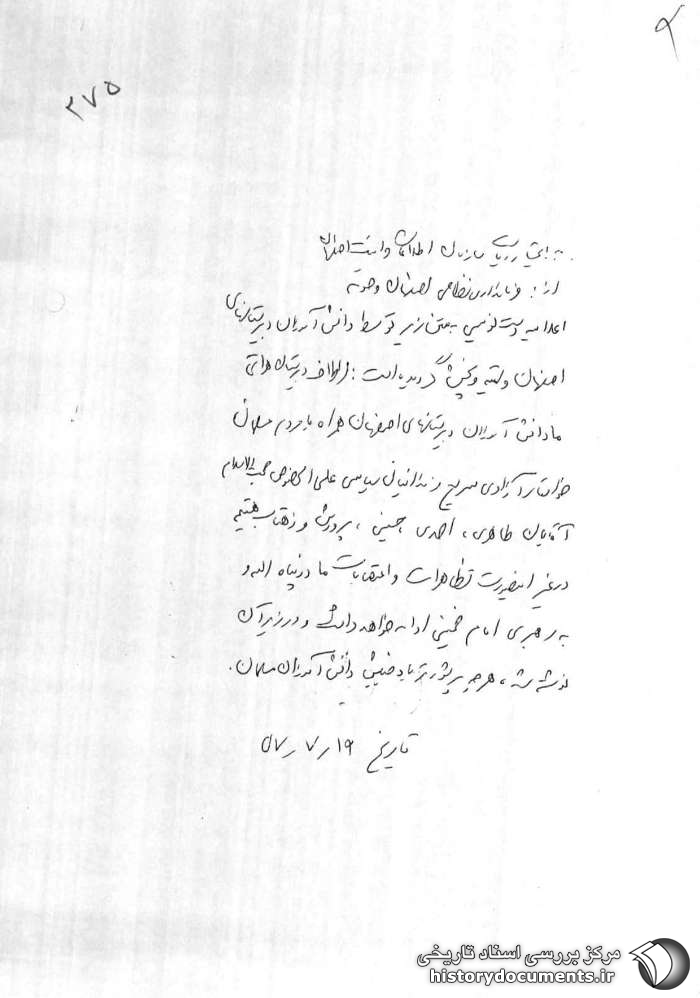 ۳۷۵
ریاست سازمان اطلاعات و امنیت اصفهان
از: فرمانداری نظامی اصفهان و حومه
اعلامیه دست نویسی بمتن زیر توسط دانش آموزان دبیرستانهای
اصفهان و پخش گردیده است: از طرف دبیرستان
ما دانش آموزان دبیرستانهای اصفهان همراه با مردم مسلمان
خواستار آزادی سریع زندانیان سیاسی علی الخصوص حجت الاسلام
آقایان طاهری، احمدی، حسینی، پرورش و هستیم
در غیر اینصورت تظاهرات و اعتصابات ما در پناه الله و
به رهبری امام خمینی ادامه خواهد داشت و در زیر آن
نوشته شده، هر چه پرشورتر باد جنبش دانش آموزان مسلمان.
تاریخ ۱۹ر۷ر۵۷
مرکز بررسی اسناد تاریخی
historydocuments.ir